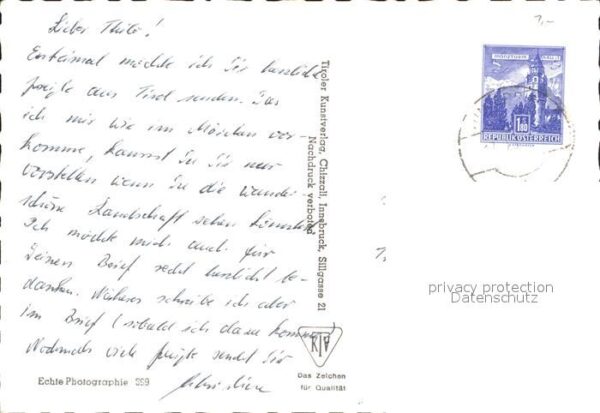 Lieber Thilo!
Erst einmal möchte ich Dir herzliche
Grüße aus Tirol senden. Daß
ich mir wie im Märchen vor-
komme, kannst Du Dir nur
vorstellen wenn Du die wunder-
schöne Landschaft sehen könntest
Ich möchte mich auch für
Deinen Brief recht herzlich be-
danken. Näheres schreibe ich aber
im Brief (sobald ich dazu komme)
Nochmals viele Grüße sendet Dir
Christiane
Echte Photographie 399
Tiroler Kunstverlag, Chizzali, Innsbruck, Sillgasse 21
Nachdruck verboten
KTV
Das Zeichen
für Qualität
?,-
MÜNZTURM HALL i.T.
1.80
REPUBLIK ÖSTERREICH
privacy protection
Datenschutz